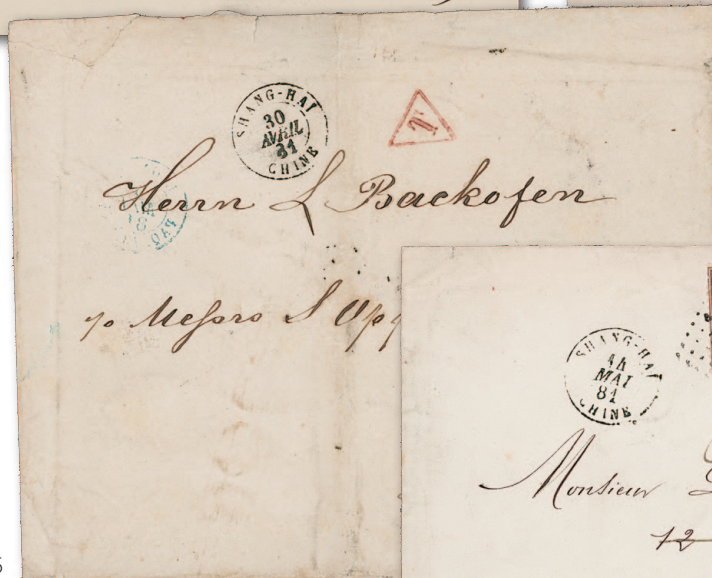 SHANG-HAI
30
AVRIL
81
CHINE
T
Herrn L Backofen
po Messrs S Opp
SHANG-HAI
14
MAI
81
CHINE
Monsieur
12